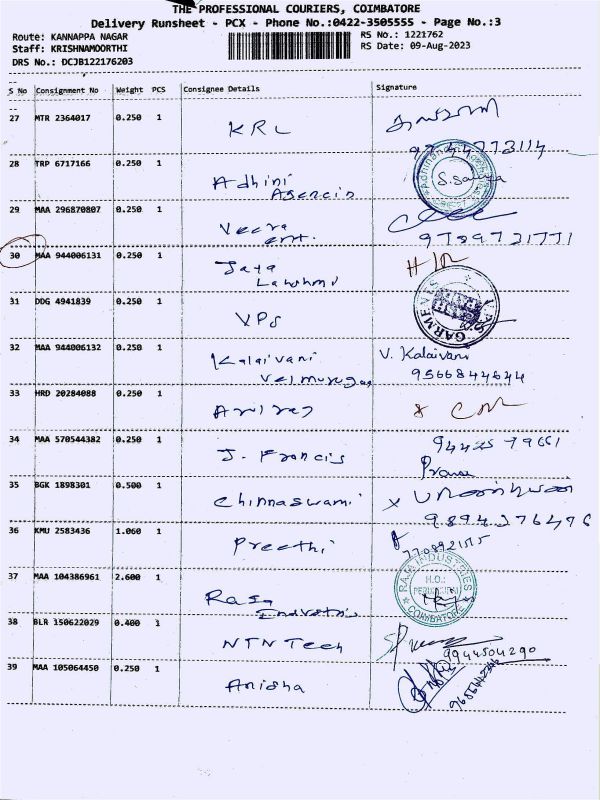 THE PROFESSIONAL COURIERS, COIMBATORE
Delivery Runsheet - PCX - Phone No.:0422-3505555 - Page No.:3
Route: KANNAPPA NAGAR
RS No.: 1221762
Staff: KRISHNAMOORTHI
RS Date: 09-Aug-2023
DRS No.: DCJB122176203
S No Consignment No Weight PCS Consignee Details Signature
27 MTR 2364017 0.250 1 KRL
28 TRP 6717166 0.250 1 Adhini S.Saranya
Agencis
29 MAA 296870807 0.250 1 Veera
ent. 9789721771
30 MAA 944006131 0.250 1 Jaya
Lakshmi
31 DDG 4941839 0.250 1 VPS GARMENTS
32 MAA 944006132 0.250 1 Kalaivani V. Kalaivani
Velmurugan 9566844644
33 HRD 20284088 0.250 1
34 MAA 570544382 0.250 1 J. Francis
35 BGK 1898301 0.500 1 Chinnaswami
9894276476
36 KMU 2583436 1.060 1 Preethi
37 MAA 104386961 2.600 1 Raja RAJA INDUSTRIES H.O.: COIMBATORE
Industris
38 BLR 150622029 0.400 1 NTN Tech
9944504290
39 MAA 105064450 0.250 1 Anisha